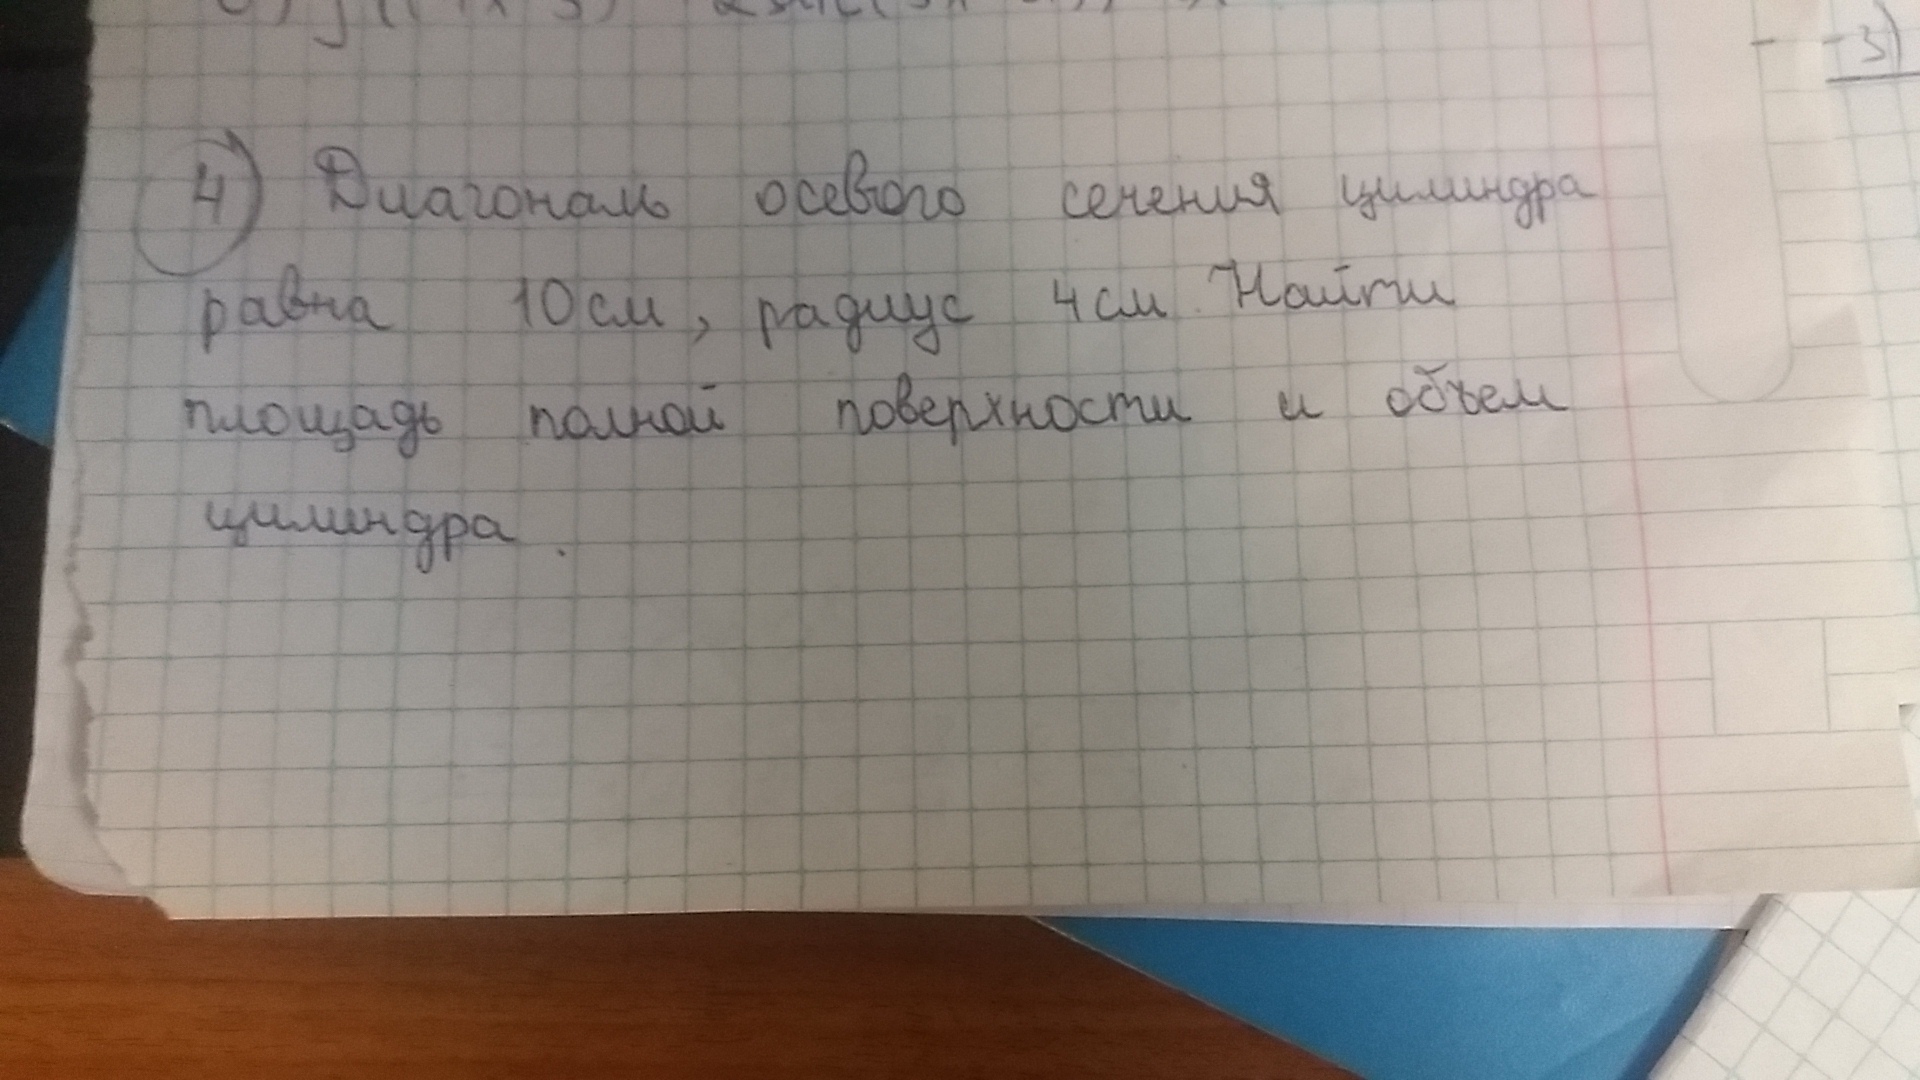 4) Диагональ осевого сечения цилиндра
равна 10 см, радиус 4 см. Найти
площадь полной поверхности и объем
цилиндра.
-3)